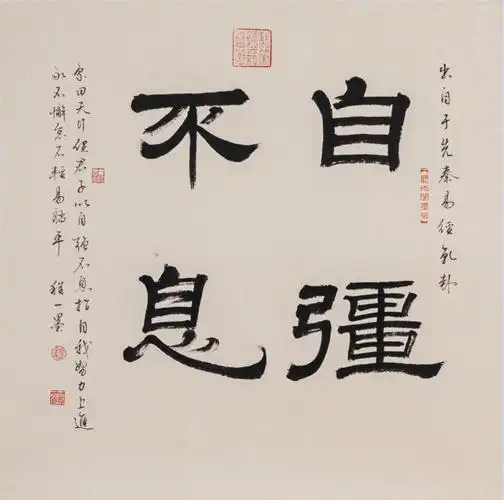 出自于先秦易經乾卦
自彊
不息
象曰天行健君子以自強不息指自我努力上進
永不懈怠不輕易躺平 程一墨